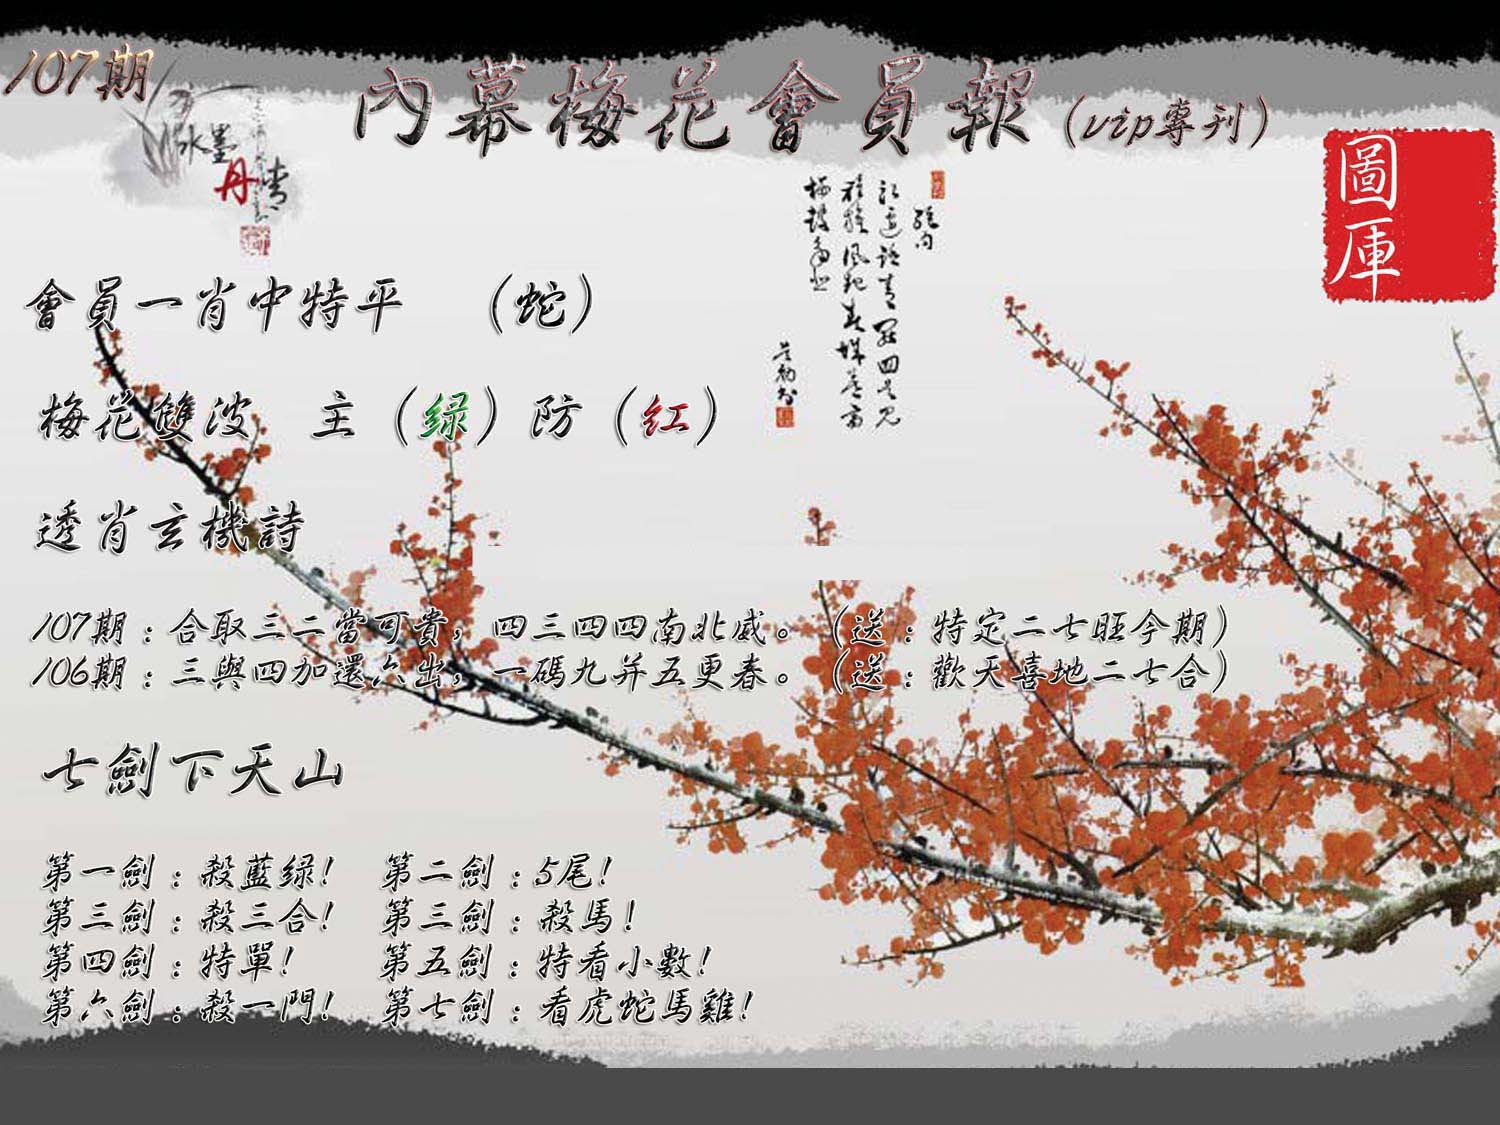 107期
內幕梅花會員報(vip專刊)
水墨
丹青
圖庫
會員一肖中特平 (蛇)
梅花雙波 主(绿)防(红)
透肖玄機詩
107期:合取三二當可貴,四三四四南北威。(送:特定二七旺今期)
106期:三與四加還六出,一碼九并五更春。(送:歡天喜地二七合)
七劍下天山
第一劍:殺藍绿! 第二劍:5尾!
第三劍:殺三合! 第三劍:殺馬!
第四劍:特單! 第五劍:特看小數!
第六劍:殺一門! 第七劍:看虎蛇馬雞!